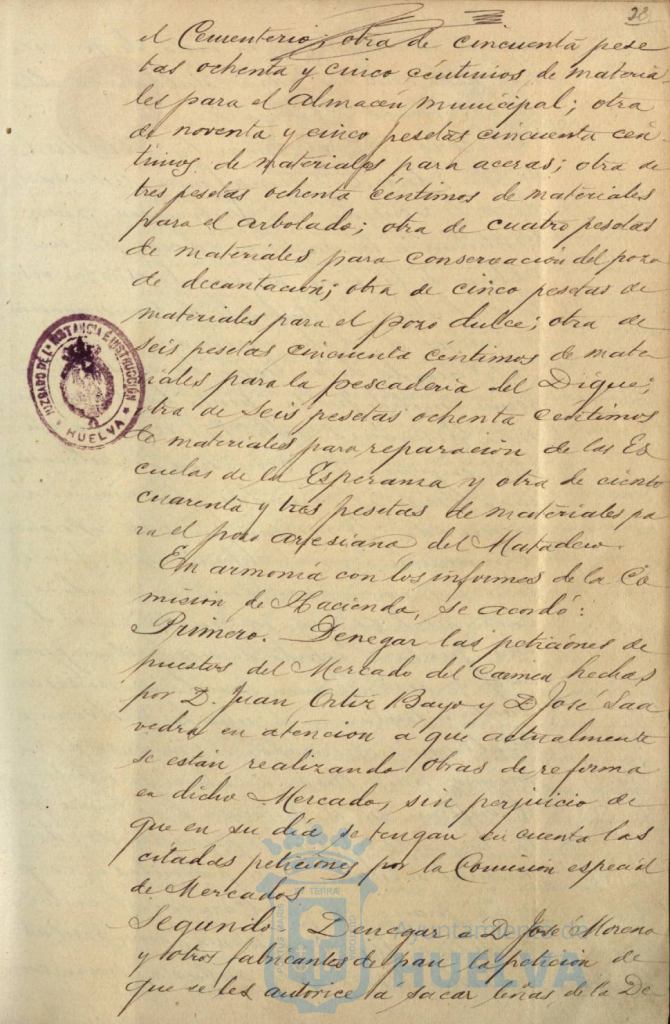 28
el Cementerio; otra de cincuenta pese
tas ochenta y cinco céntimos de materia
les para el almacén municipal; otra
de noventa y cinco pesetas cincuenta cén-
timos de materiales para aceras; otra de
tres pesetas ochenta céntimos de materiales
para el arbolado; otra de cuatro pesetas
de materiales para conservación del pozo
de decantación; otra de cinco pesetas de
materiales para el pozo dulce; otra de
seis pesetas cincuenta céntimos de mate
riales para la pescaderia del Dique;
otra de seis pesetas ochenta centimos
de materiales para reparación de las Es
cuelas de la Esperanza y otra de ciento
cuarenta y tres pesetas de materiales pa
ra el pozo artesiano del Matadero.
En armonía con los informes de la Co
misión de Hacienda, se acordó:
Primero. Denegar las peticiones de
puestos del Mercado del Carmen hechas
por D. Juan Ortiz Bayo y D. José Saa
vedra en atencion á que actualmente
se están realizando obras de reforma
en dicho Mercado, sin perjuicio de
que en su día se tengan en cuenta las
citadas peticiones por la Comisión especial
de Mercados.
Segundo. Denegar á D. José Moreno
y otros fabricantes de pan la petición de
que se les autorice a sacar leñas de la De
JUZGADO DE 1ª INSTANCIA E INSTRUCCIÓN
* HUELVA *
Ayuntamiento de
HUELVA